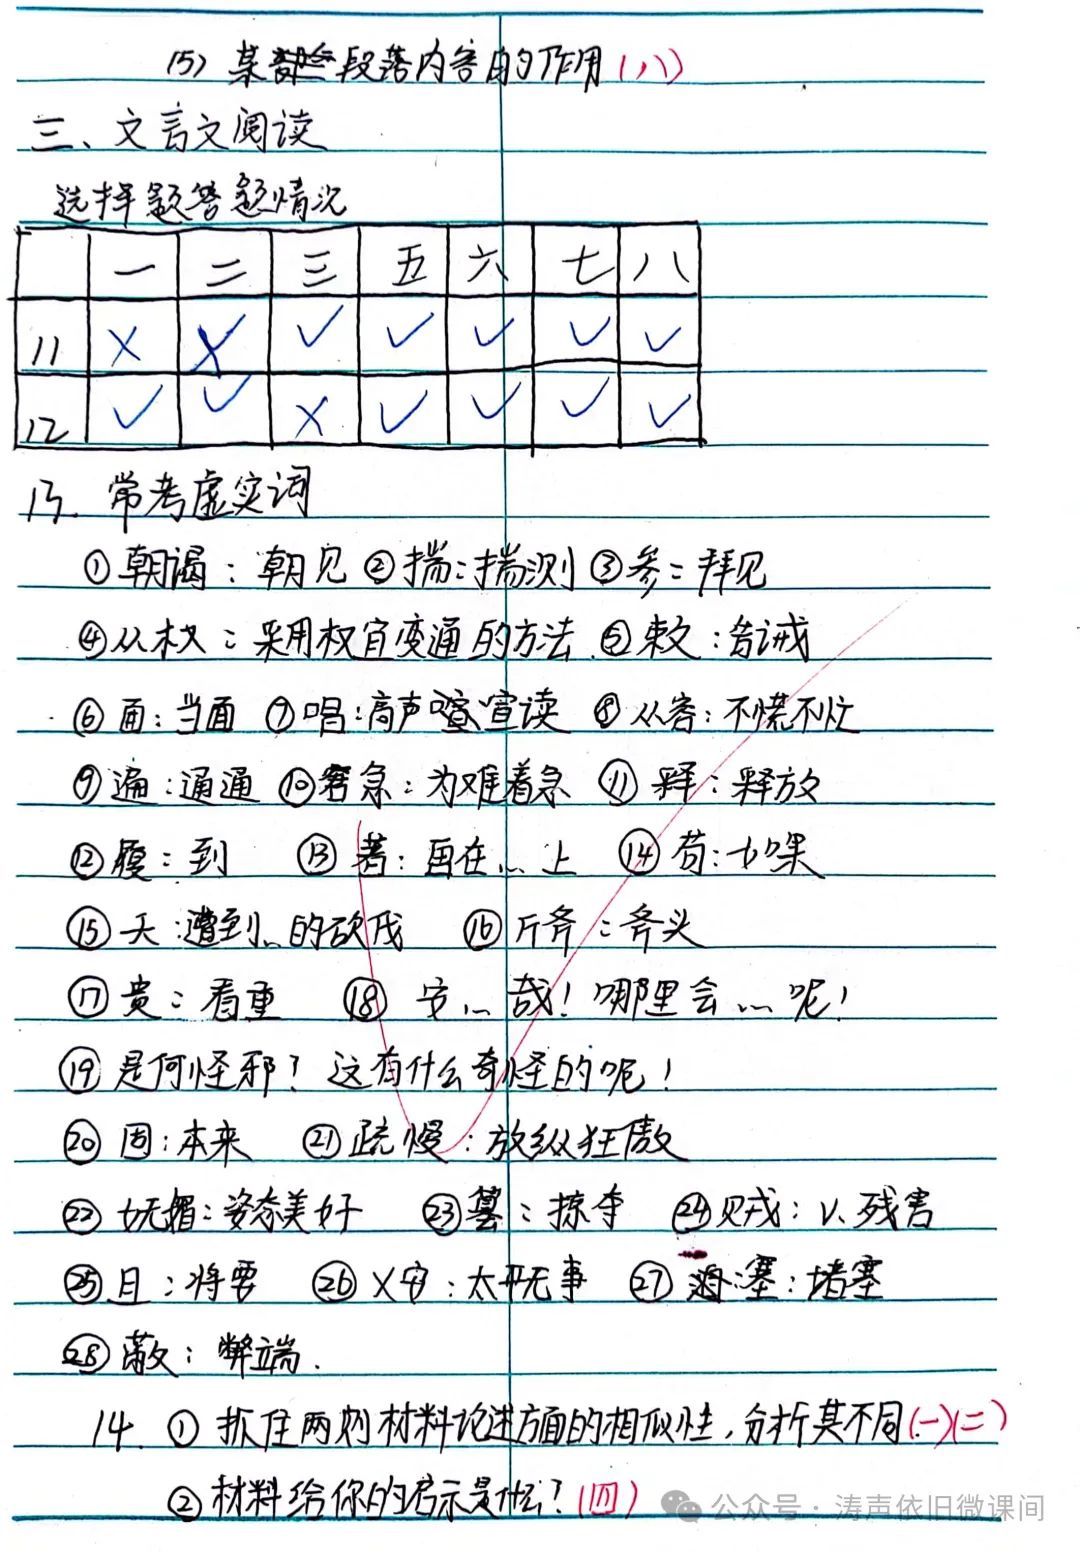 (5) 某段落内容的作用(八)
三、文言文阅读
选择题答题情况
一 二 三 五 六 七 八
11 × × ✓ ✓ ✓ ✓ ✓
12 ✓ ✓ × ✓ ✓ ✓ ✓
13. 常考虚实词
①朝谒：朝见 ②揣：揣测 ③参：拜见
④从权：采用权宜变通的方法 ⑤敕：告诫
⑥面：当面 ⑦唱：高声宣读 ⑧从容：不慌不忙
⑨遍：通通 ⑩窘急：为难着急 ⑪释：释放
⑫履：到 ⑬著：画在…上 ⑭苟：如果
⑮夭：遭到…的砍伐 ⑯斤斧：斧头
⑰贵：看重 ⑱安…哉！哪里会…呢！
⑲是何怪邪？这有什么奇怪的呢！
⑳固：本来 ㉑疏慢：放纵狂傲
㉒妩媚：姿态美好 ㉓：掠夺 ㉔贼：v.残害
㉕且：将要 ㉖乂安：太平无事 ㉗塞：堵塞
㉘蔽：弊端.
14. ①抓住两则材料论述方面的相似性，分析其不同(一)(二)
②材料给你的启示是什么？(四)
公众号·涛声依旧微课间